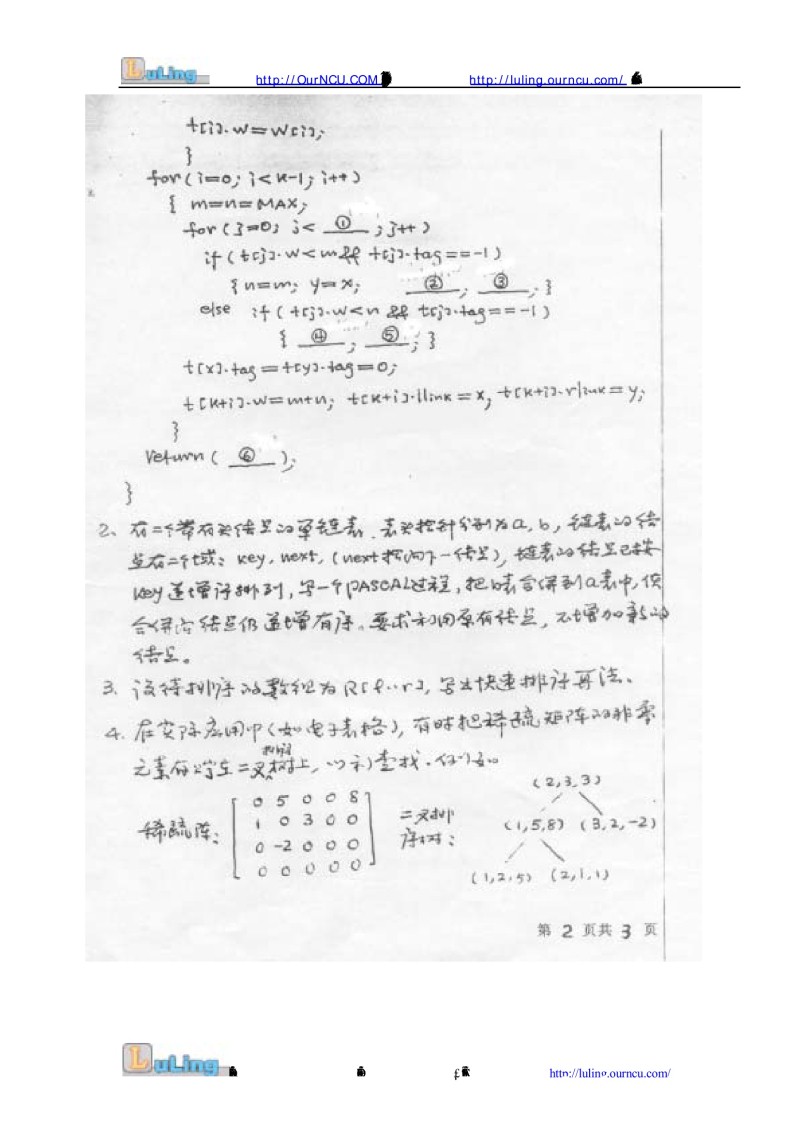 LuLing http://OurNCU.COM http://luling.ourncu.com/
t[i].w=w[i];
}
for(i=0; i<k-1; i++)
{ m=n=MAX;
for(j=0; j< ① ; j++)
if(t[j].w<m && t[j].tag==-1)
{n=m; y=x; ② ; ③ ;}
else if(t[j].w<n && t[j].tag==-1)
{ ④ ; ⑤ ;}
t[x].tag=t[y].tag=0;
t[k+i].w=m+n; t[k+i].llink=x; t[k+i].rlink=y;
}
return( ⑥ );
}
2、有二个带有头结点的单链表,表头指针分别为a,b,链表的结
点有二个域:key,next,(next指向下一结点),链表的结点已按
key递增序排列,写一个PASCAL过程,把b表合併到a表中,使
合併后结点仍递增有序。要求利用原有结点,不增加新的
结点。
3、设待排序的数组为R[l..r],写出快速排序算法。
4.在实际应用中(如电子表格),有时把稀疏矩阵的非零
元素存贮在二叉排序树上,以利查找.例如
稀疏阵:
0 5 0 0 8
1 0 3 0 0
0 -2 0 0 0
0 0 0 0 0
二叉排
序树:
(2,3,3)
(1,5,8) (3,2,-2)
(1,2,5) (2,1,1)
第 2 页共 3 页
LuLing http://luling.ourncu.com/